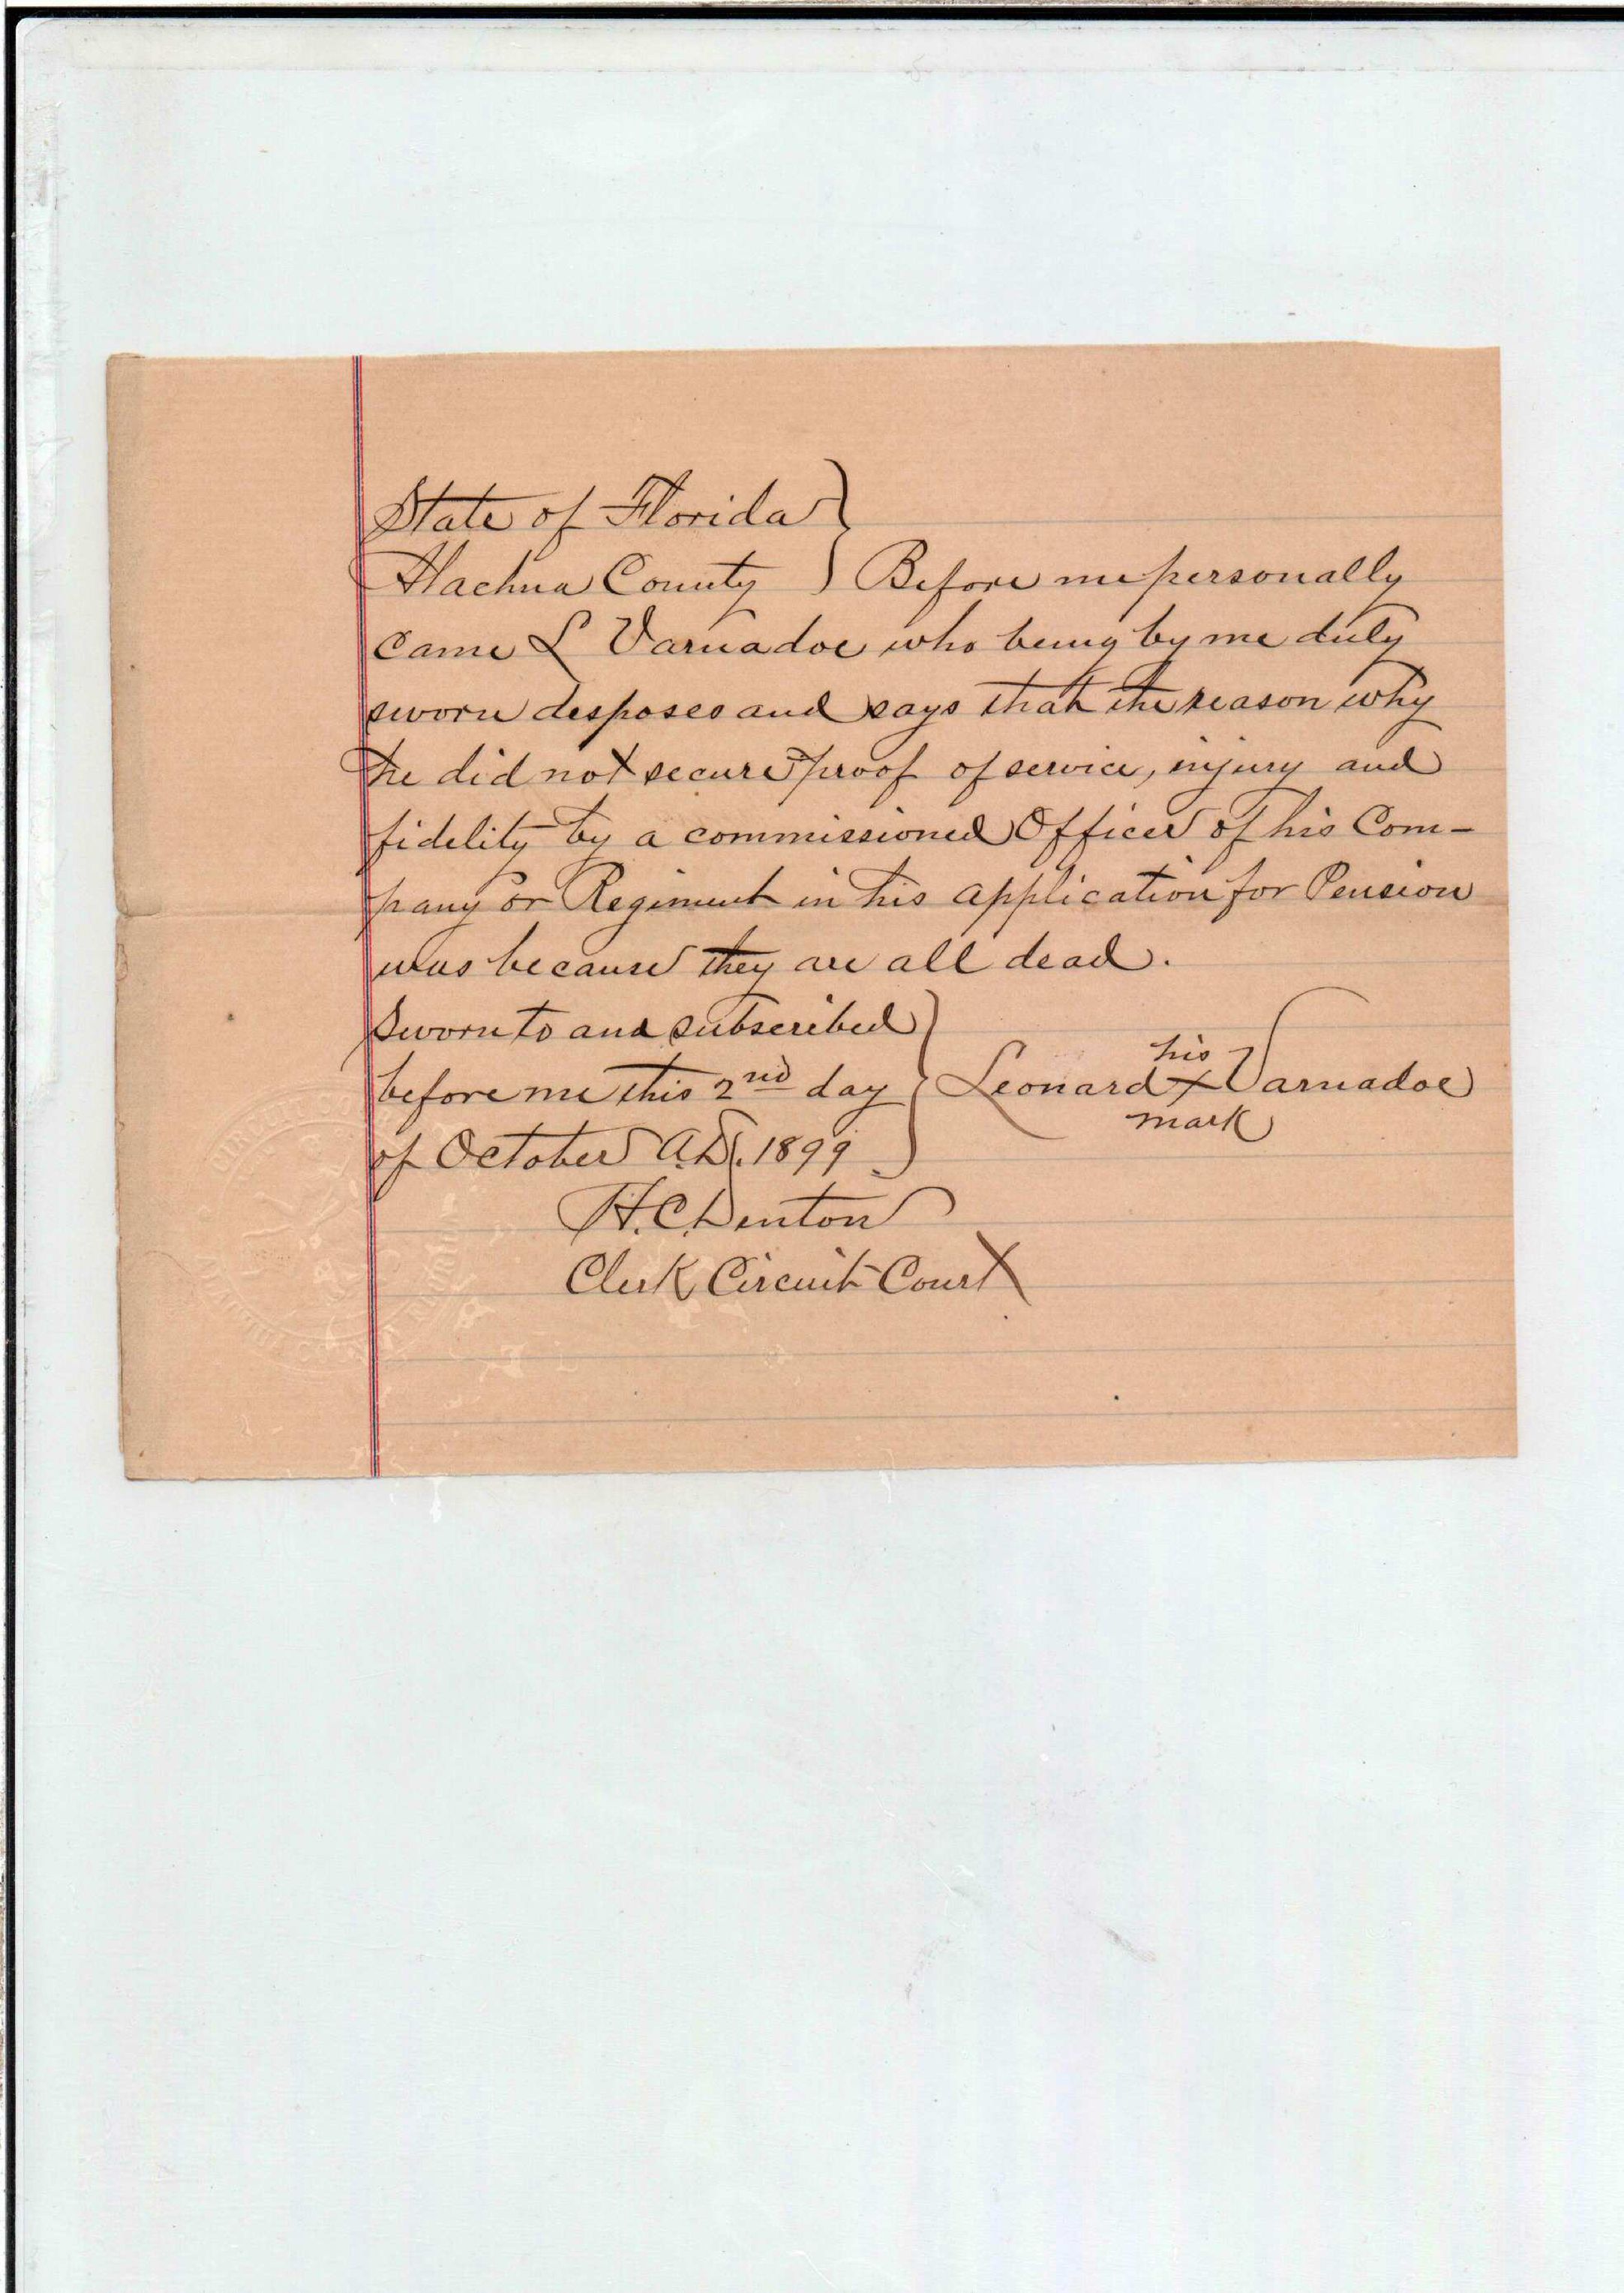 State of Florida }
Alachua County } Before me personally
came L Varnadoe who being by me duly
sworn desposes and says that the reason why
he did not secure proof of service, injury and
fidelity by a commissioned Officer of his Com-
pany or Regiment in his application for Pension
was because they are all dead.
Sworn to and subscribed }
before me this 2nd day } Leonard his x mark Varnadoe
of October A.D. 1899 }
H.C. Denton
Clerk Circuit Court